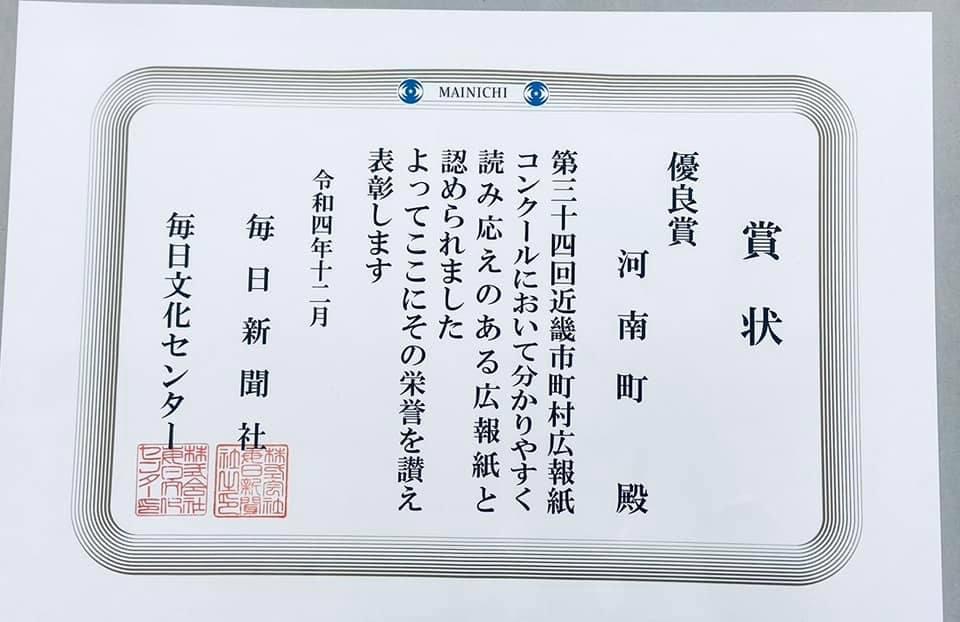 MAINICHI
賞状
優良賞
河南町 殿
第三十四回近畿市町村広報紙
コンクールにおいて分かりやすく
読み応えのある広報紙と
認められました
よってここにその栄誉を讃え
表彰します
令和四年十二月
毎日新聞社
毎日文化センター
株式会社
毎日新聞
社之印
株式会社
毎日文化
センター印